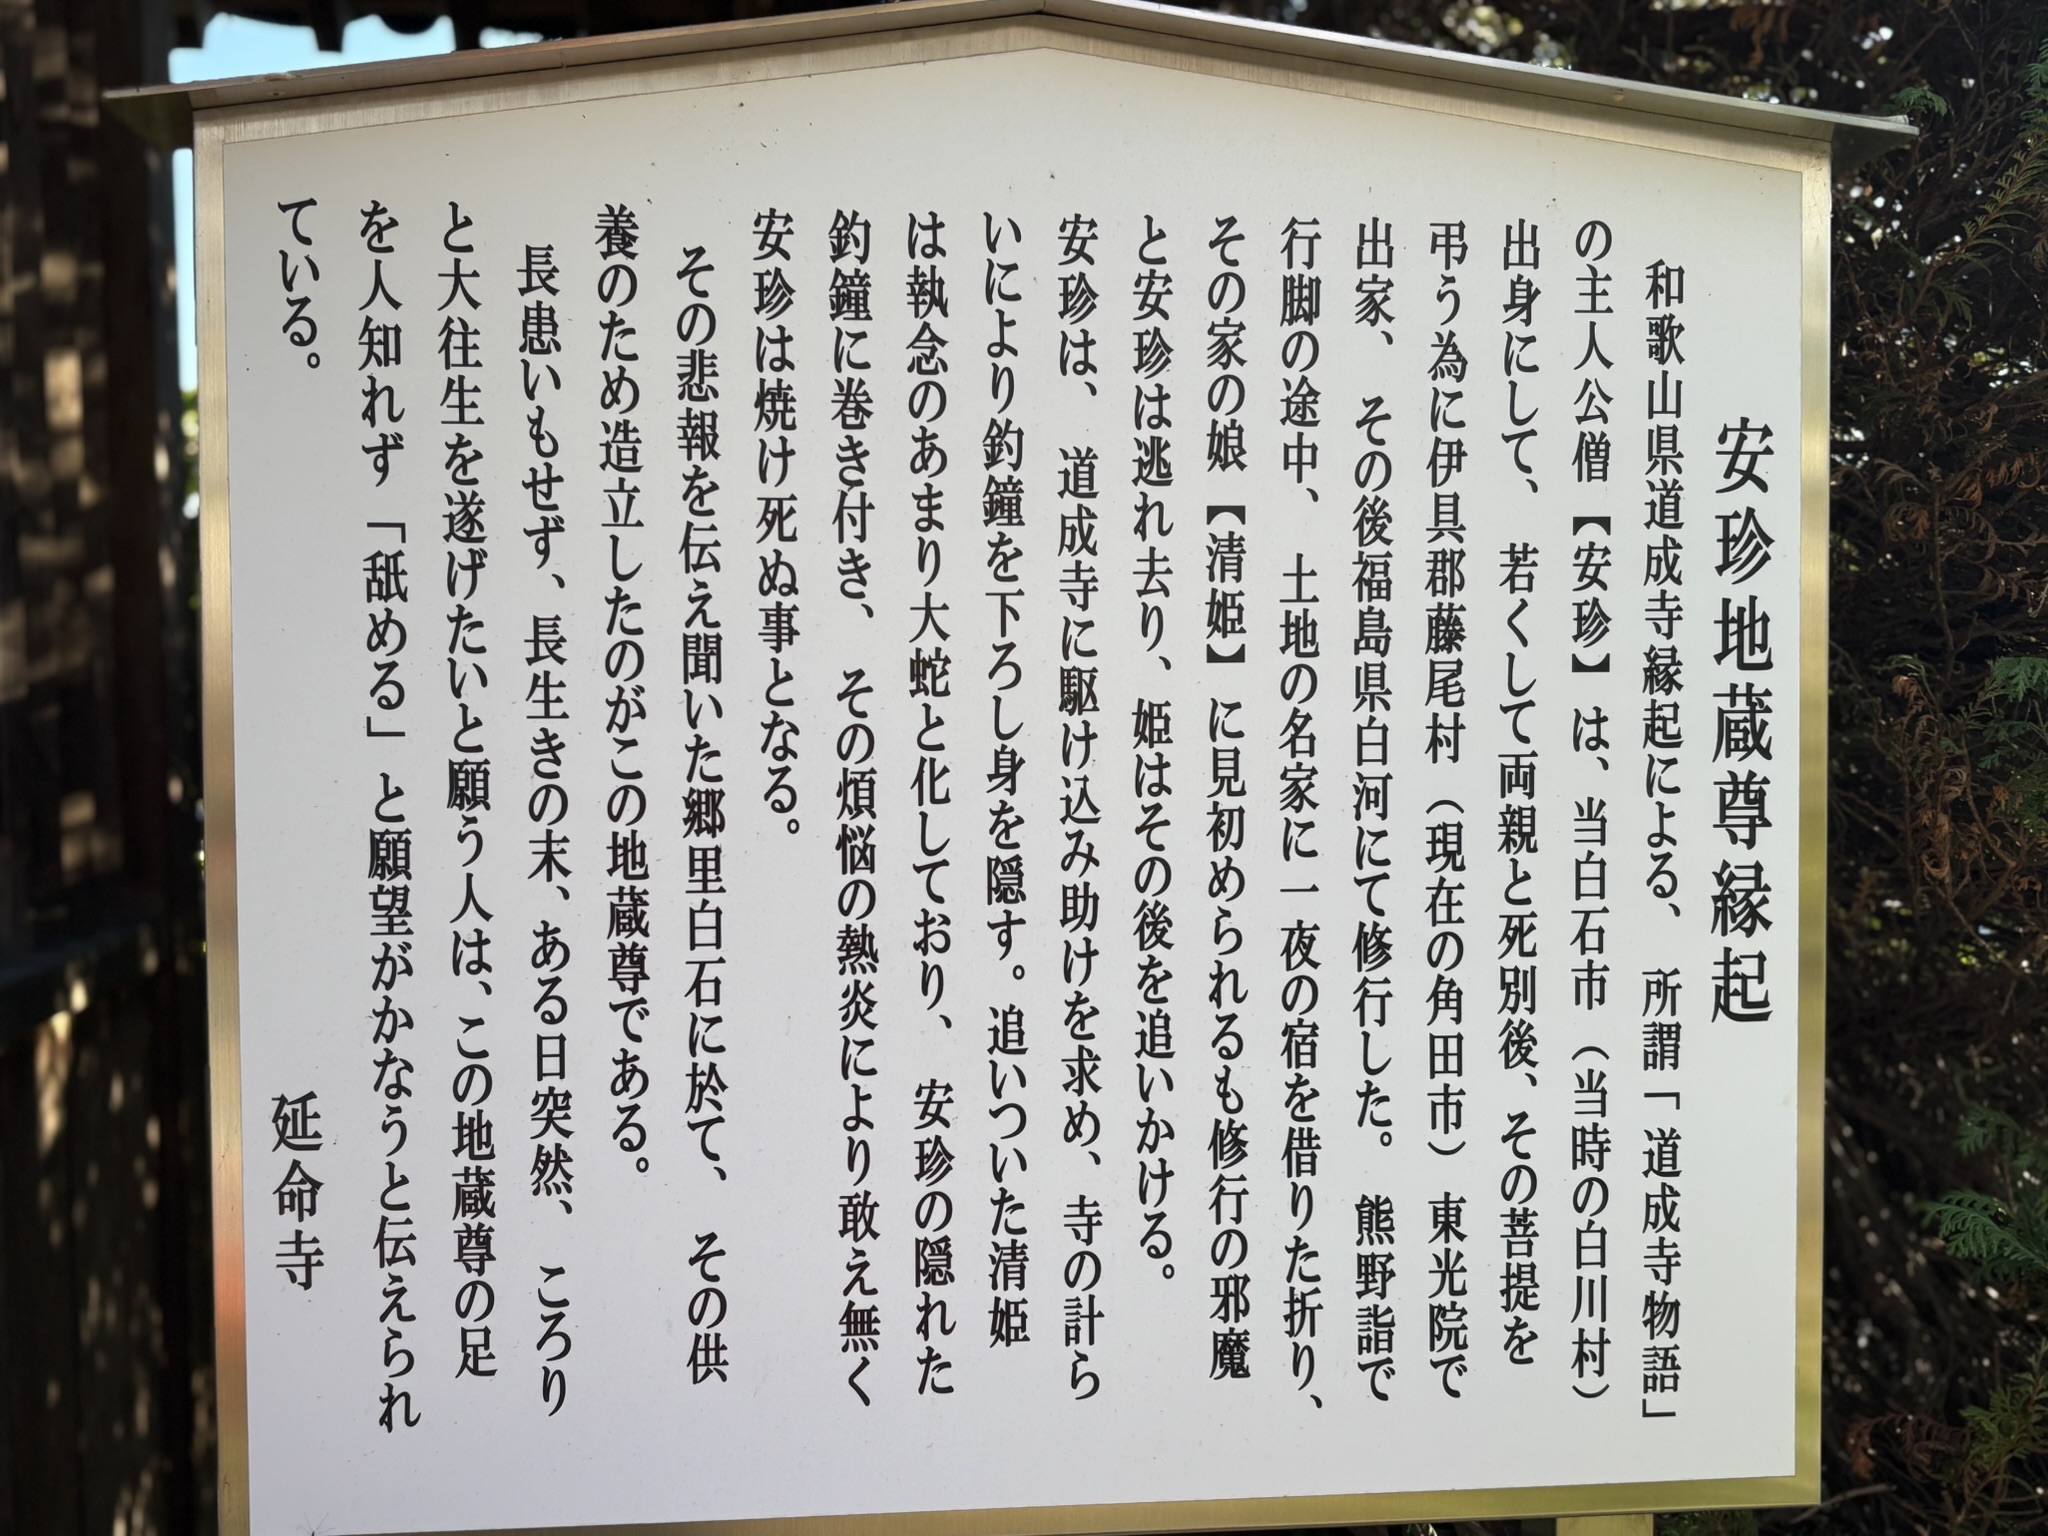 安珍地蔵尊縁起
和歌山県道成寺縁起による、所謂「道成寺物語」
の主人公僧【安珍】は、当白石市（当時の白川村）
出身にして、若くして両親と死別後、その菩提を
弔う為に伊具郡藤尾村（現在の角田市）東光院で
出家、その後福島県白河にて修行した。熊野詣で
行脚の途中、土地の名家に一夜の宿を借りた折り、
その家の娘【清姫】に見初められるも修行の邪魔
と安珍は逃れ去り、姫はその後を追いかける。
安珍は、道成寺に駆け込み助けを求め、寺の計ら
いにより釣鐘を下ろし身を隠す。追いついた清姫
は執念のあまり大蛇と化しており、安珍の隠れた
釣鐘に巻き付き、その煩悩の熱炎により敢え無く
安珍は焼け死ぬ事となる。
その悲報を伝え聞いた郷里白石に於て、その供
養のため造立したのがこの地蔵尊である。
長患いもせず、長生きの末、ある日突然、ころり
と大往生を遂げたいと願う人は、この地蔵尊の足
を人知れず「舐める」と願望がかなうと伝えられ
ている。
延命寺